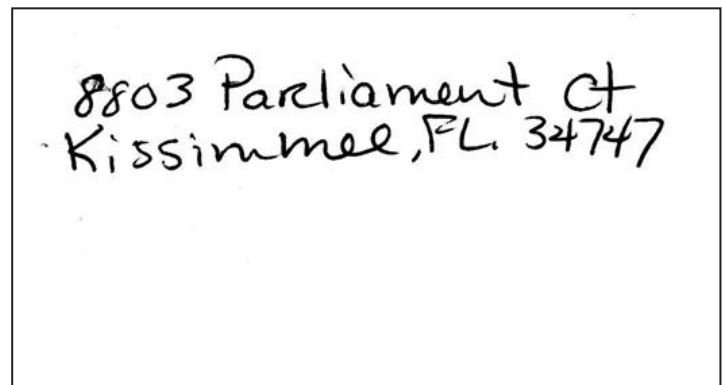 8803 Parliament Ct
Kissimmee, FL. 34747